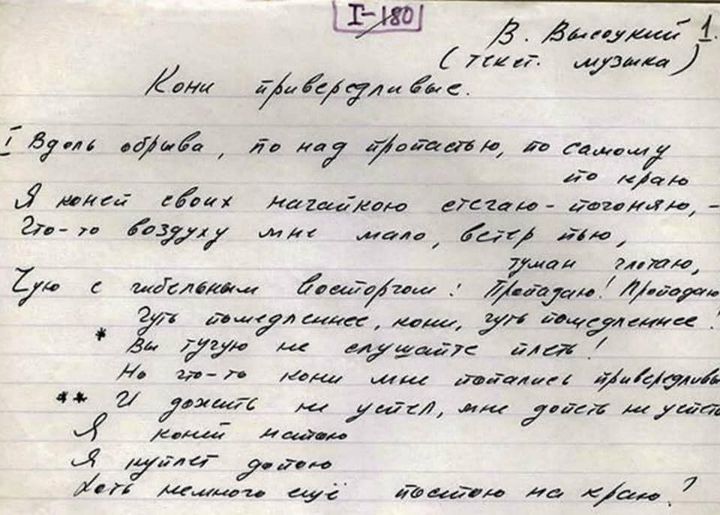 I-180
1.
В. Высоцкий
(текст. музыка)
Кони привередливые.
I Вдоль обрыва, по над пропастью, по самому
по краю
Я коней своих нагайкою стегаю - погоняю, -
Что-то воздуху мне мало, ветер пью,
туман глотаю,
Чую с гибельным восторгом: Пропадаю! Пропадаю
Чуть помедленнее, кони, чуть помедленнее!
* Вы тугую не слушайте плеть!
Но что-то кони мне попались привередливы
** И дожить не успел, мне допеть не успеть
Я коней напою
Я куплет допою
Хоть немного ещё постою на краю!